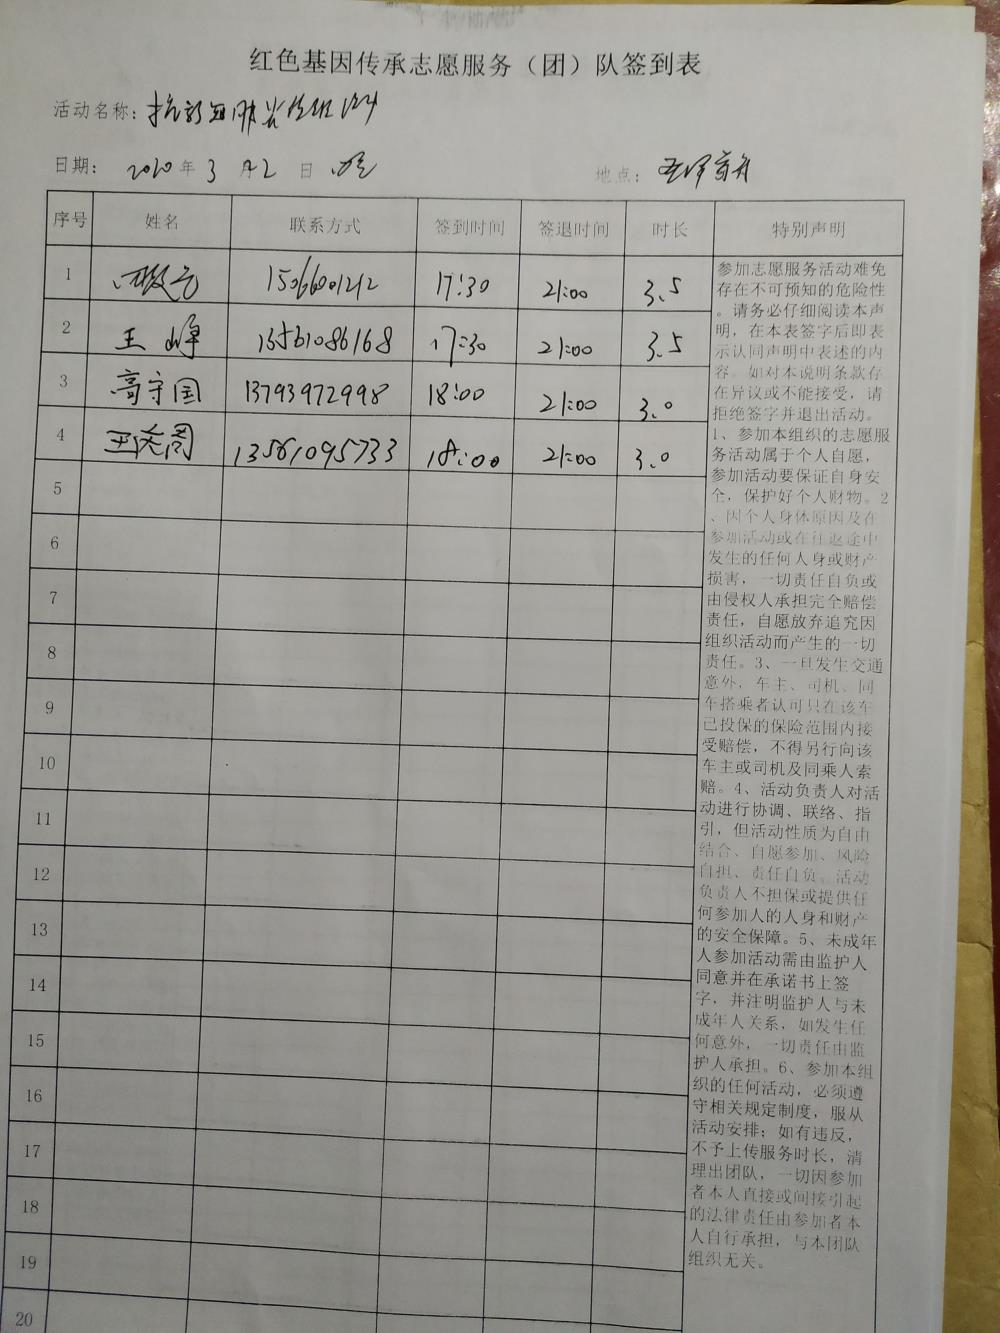 红色基因传承志愿服务（团）队签到表
活动名称：抗新冠肺炎
日期： 2020年3月2日
地点：
序号 姓名 联系方式 签到时间 签退时间 时长 特别声明
1 15066001212 17:30 21:00 3.5
2 王峰 13561086168 17:30 21:00 3.5
3 高守国 13793972998 18:00 21:00 3.0
4 13561095733 18:00 21:00 3.0
5
6
7
8
9
10
11
12
13
14
15
16
17
18
19
20
参加志愿服务活动难免
存在不可预知的危险性
。请务必仔细阅读本声
明，在本表签字后即表
示认同声明中表述的内
容。如对本说明条款存
在异议或不能接受，请
拒绝签字并退出活动。
1、参加本组织的志愿服
务活动属于个人自愿，
参加活动要保证自身安
全，保护好个人财物。2
、因个人身体原因及在
参加活动或在往返途中
发生的任何人身或财产
损害，一切责任自负或
由侵权人承担完全赔偿
责任，自愿放弃追究因
组织活动而产生的一切
责任。3、一旦发生交通
意外，车主、司机、同
车搭乘者认可只在该车
已投保的保险范围内接
受赔偿，不得另行向该
车主或司机及同乘人索
赔。4、活动负责人对活
动进行协调、联络、指
引，但活动性质为自由
结合、自愿参加、风险
自担、责任自负。活动
负责人不担保或提供任
何参加人的人身和财产
的安全保障。5、未成年
人参加活动需由监护人
同意并在承诺书上签
字，并注明监护人与未
成年人关系，如发生任
何意外，一切责任由监
护人承担。6、参加本组
织的任何活动，必须遵
守相关规定制度，服从
活动安排；如有违反，
不予上传服务时长，清
理出团队，一切因参加
者本人直接或间接引起
的法律责任由参加者本
人自行承担，与本团队
组织无关。